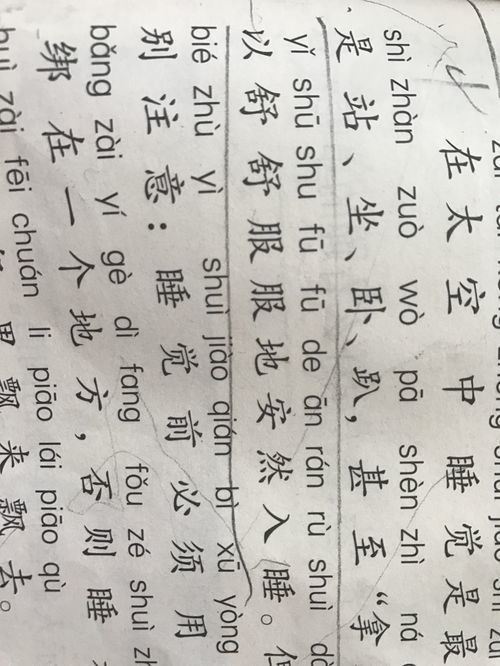 在太空中睡觉是最
shì zhàn zuò wò pā shèn zhì ná
是站、坐、卧、趴，甚至“拿
yǐ shū shu fū fū de ān rán rù shuì
以舒舒服服地安然入睡。但
bié zhù yì shuì jiào qián bì xū yòng
别注意：睡觉前必须用
bǎng zài yí gè dì fang fǒu zé shuì
绑在一个地方，否则睡
huì zài fēi chuán li piāo lái piāo qù
里飘来飘去。